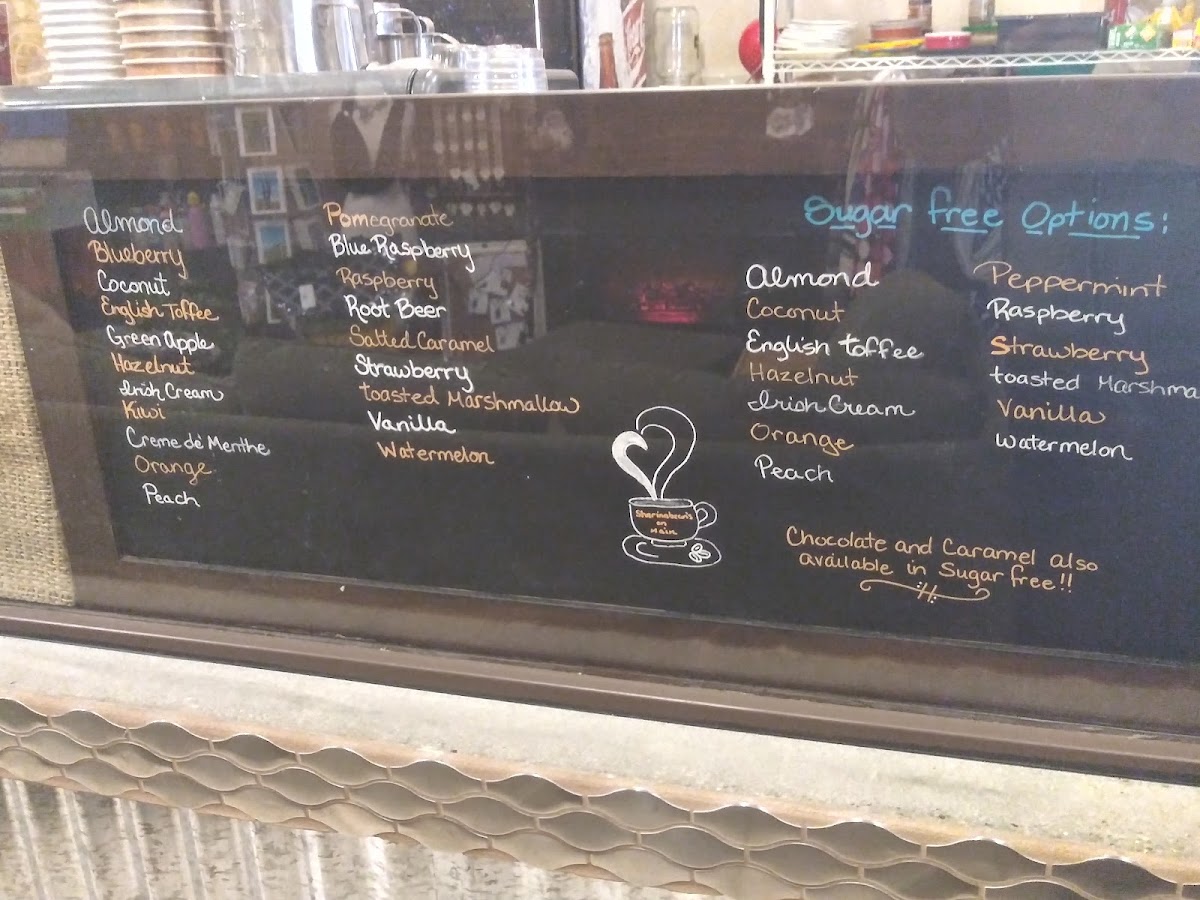 Almond
Blueberry
Coconut
English Toffee
Green Apple
Hazelnut
Irish Cream
Kiwi
Creme de Menthe
Orange
Peach
Pomegranate
Blue Raspberry
Raspberry
Root Beer
Salted Caramel
Strawberry
toasted Marshmallow
Vanilla
Watermelon
on
Main
Sugar free Options:
Almond
Coconut
English toffee
Hazelnut
Irish Cream
Orange
Peach
Peppermint
Raspberry
Strawberry
toasted Marshma
Vanilla
Watermelon
Chocolate and Caramel also
available in Sugar free!!